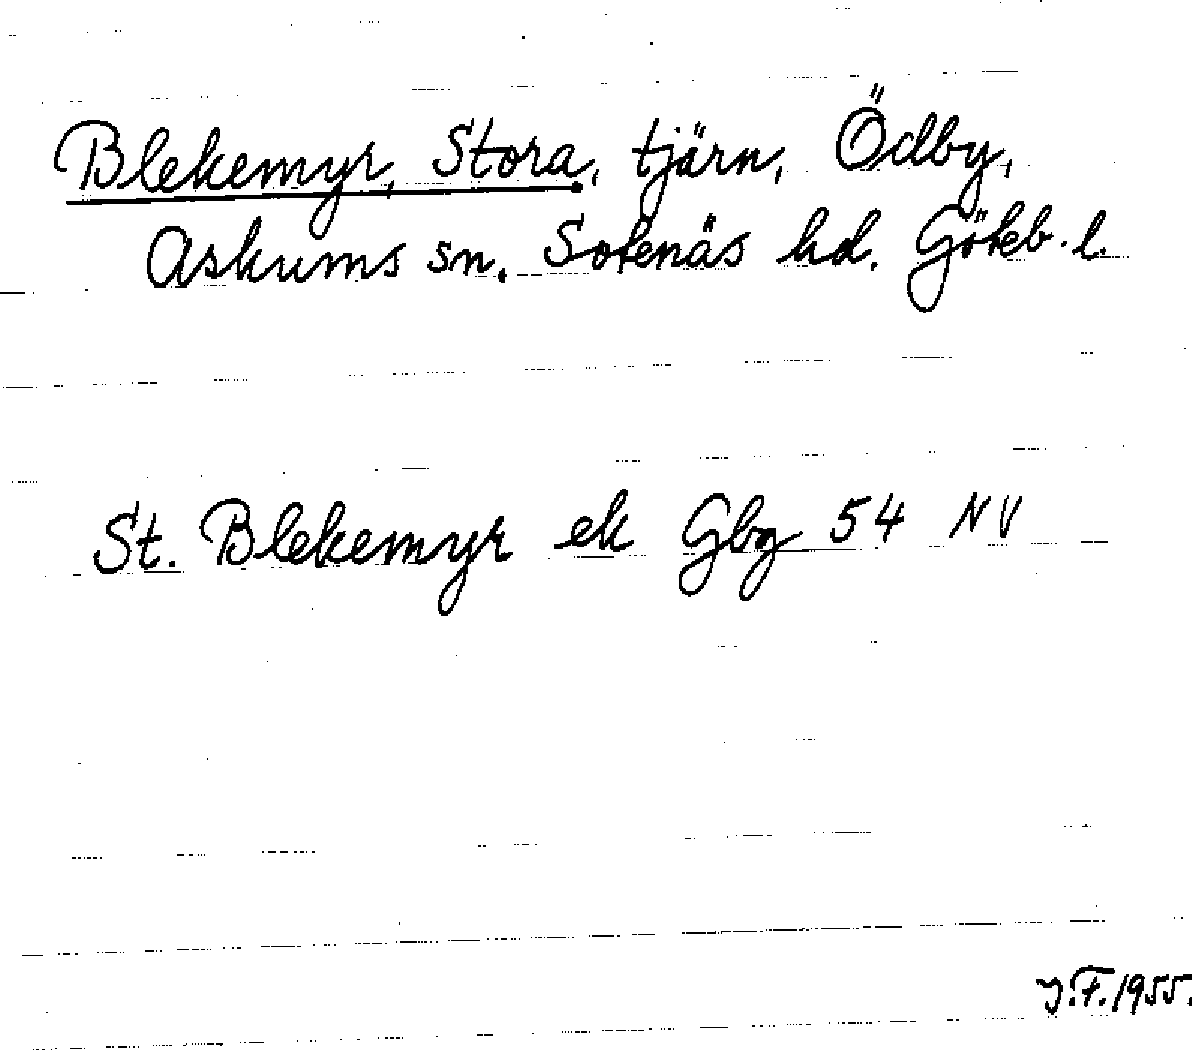 Blekemyr, Stora, tjärn, Ödby,
Askums sn. Sotenäs hd. Göteb. l.
St. Blekemyr ek Gbg 54 NV
J.F. 1955.